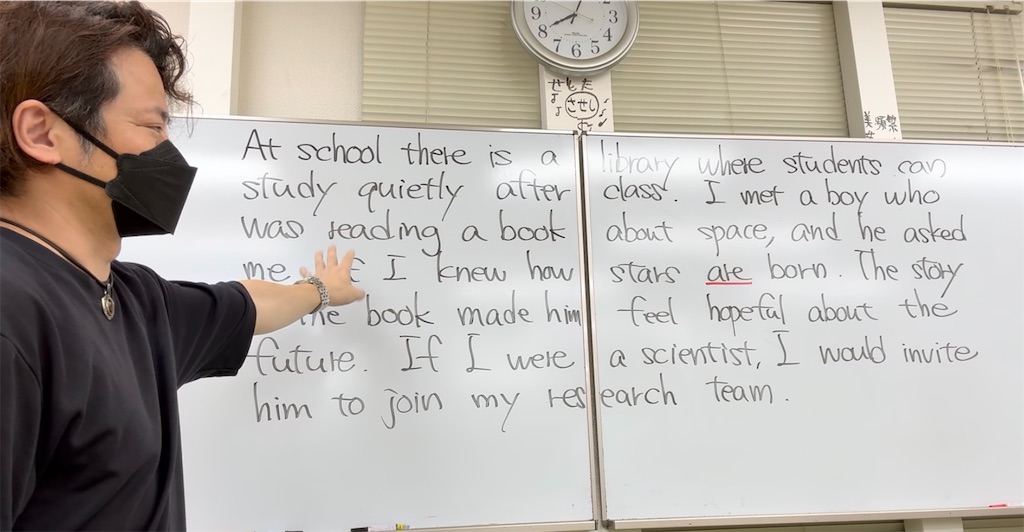 9 3
8 4
7 6 5
させし
At school there is a library where students can
study quietly after class. I met a boy who
was reading a book about space, and he asked
me I knew how stars are born. The story
book made him feel hopeful about the
future. If I were a scientist, I would invite
him to join my research team.